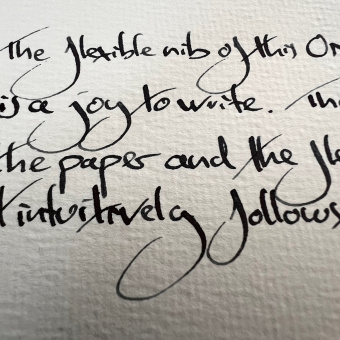 The flexible nib of this
is a joy to write. The
the paper and the
intuitively follows